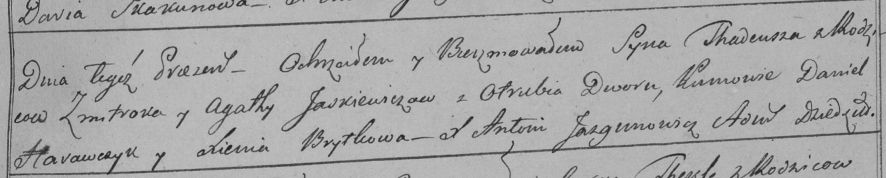 Daria Skakunowa
Dnia tegoż Prezent – Ochrzciłem y Bierzmowałem Syna Thadeusza z Rodzi-
cow Zmitroka y Agathy Jaskiewiczow z Otrubia Dworu, Kumowie Daniel
Harawczyk y Xienia Brytkowa – X Antoni Jazgunowicz Adm Dziedził.
Thekle z Rodzicow